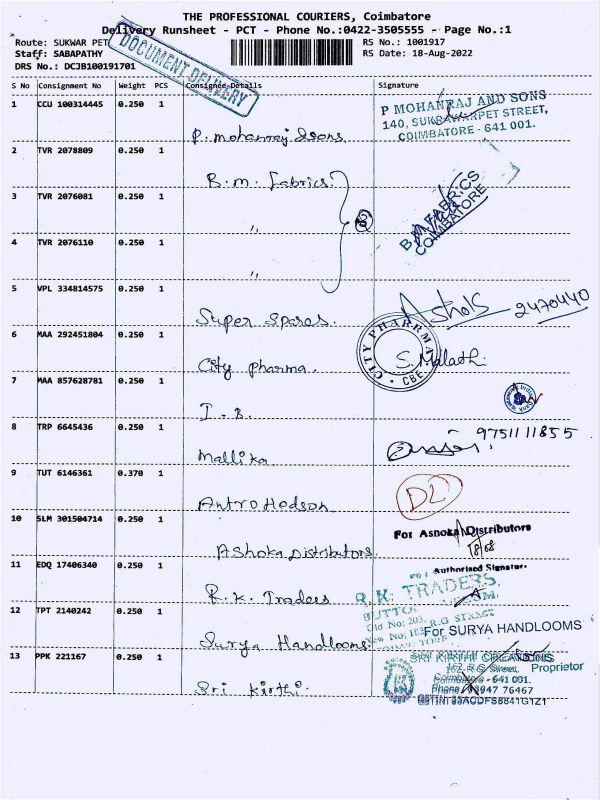 THE PROFESSIONAL COURIERS, Coimbatore
Delivery Runsheet - PCT - Phone No.:0422-3505555 - Page No.:1
Route: SUKWAR PET
RS No.: 1001917
Staff: SABAPATHY
RS Date: 18-Aug-2022
DRS No.: DCJB100191701
DOCUMENT DELIVERY
S No Consignment No Weight PCS Consignee Details Signature
1 CCU 100314445 0.250 1
P. Mohanraj & sons
P MOHANRAJ AND SONS
140, SUKRAWARPET STREET,
COIMBATORE - 641 001.
2 TVR 2078809 0.250 1
B.M. Fabrics
B.M. FABRICS
COIMBATORE
3 TVR 2076081 0.250 1
"
4 TVR 2076110 0.250 1
"
5 VPL 334814575 0.250 1
Super Spares
Ashok 2470440
6 MAA 292451804 0.250 1
City pharma.
CITY PHARRMA
CBE
S. Malath
7 MAA 857628781 0.250 1
8 TRP 6645436 0.250 1
Mallika
9751111855
9 TUT 6146361 0.370 1
Antro Hodson
DL
10 SLM 301504714 0.250 1
Ashoka Distributors
For Ashoka Distributors
18/08
Authorised Signatory
11 EDQ 17406340 0.250 1
R.K. Traders
R.K. TRADERS,
Old No: 203,
R.G STREET
12 TPT 2140242 0.250 1
Surya Handlooms
For SURYA HANDLOOMS
Proprietor
13 PPK 221167 0.250 1
Sri Kirthi
SRI KIRTHI CREATIONS
R.G. Street,
Coimbatore - 641 001.